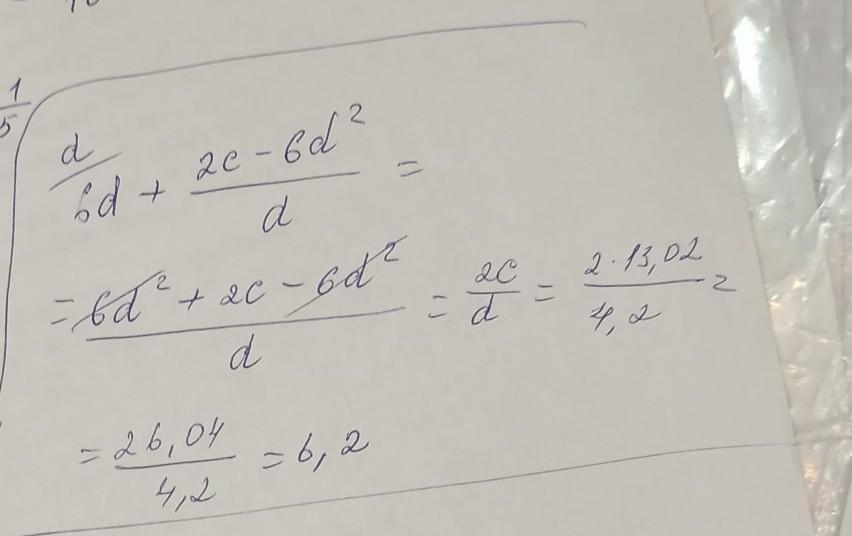 1/5
d/ 6d + (2c - 6d²)/d =
= (6d² + 2c - 6d²)/d = 2c/d = (2 · 13,02)/4,2 =
= 26,04/4,2 = 6,2